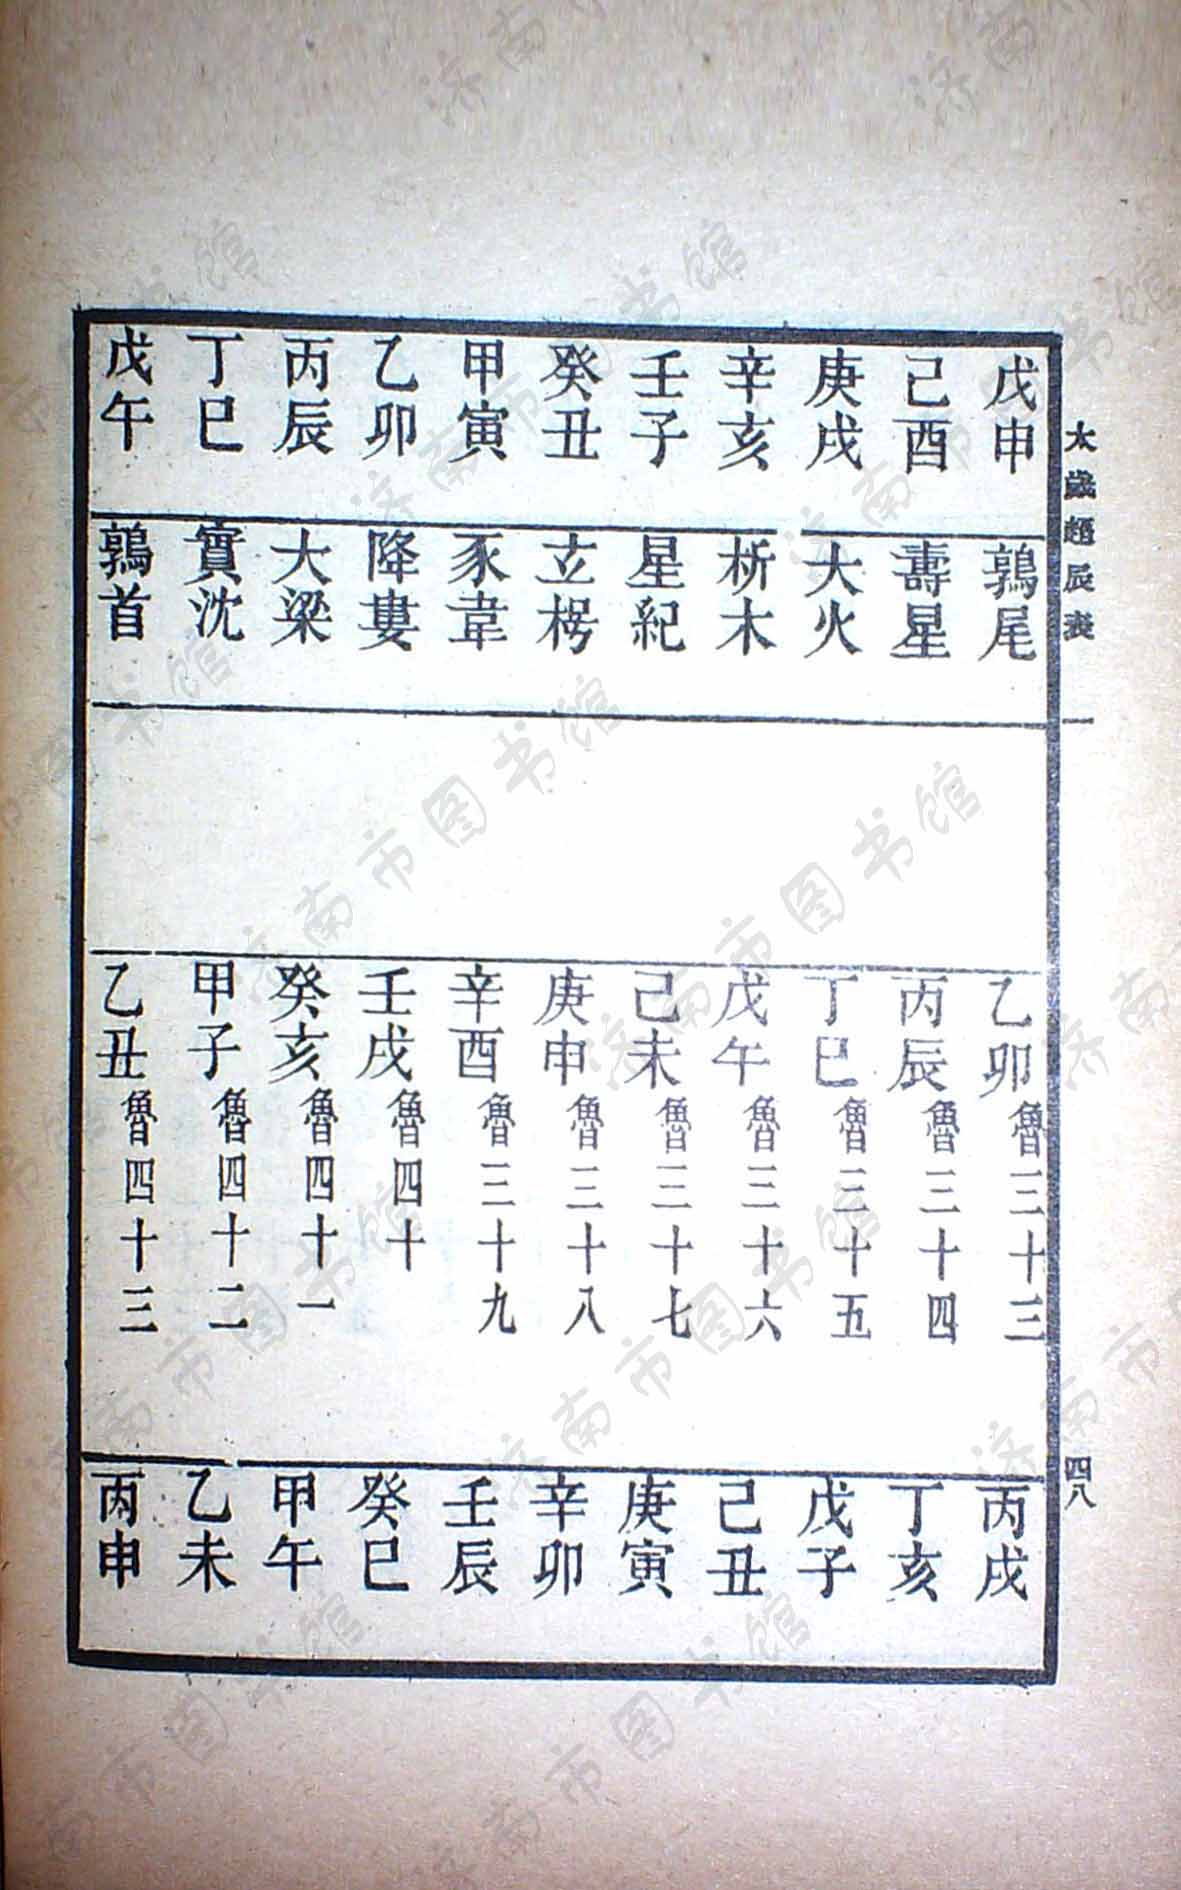 太歲超辰表 一 四八
戊申 鶉尾 乙卯魯三十三 丙戌
己酉 壽星 丙辰魯三十四 丁亥
庚戌 大火 丁巳魯三十五 戊子
辛亥 析木 戊午魯三十六 己丑
壬子 星紀 己未魯三十七 庚寅
癸丑 玄枵 庚申魯三十八 辛卯
甲寅 豕韋 辛酉魯三十九 壬辰
乙卯 降婁 壬戌魯四十 癸巳
丙辰 大梁 癸亥魯四十一 甲午
丁巳 實沈 甲子魯四十二 乙未
戊午 鶉首 乙丑魯四十三 丙申
济南市图书馆